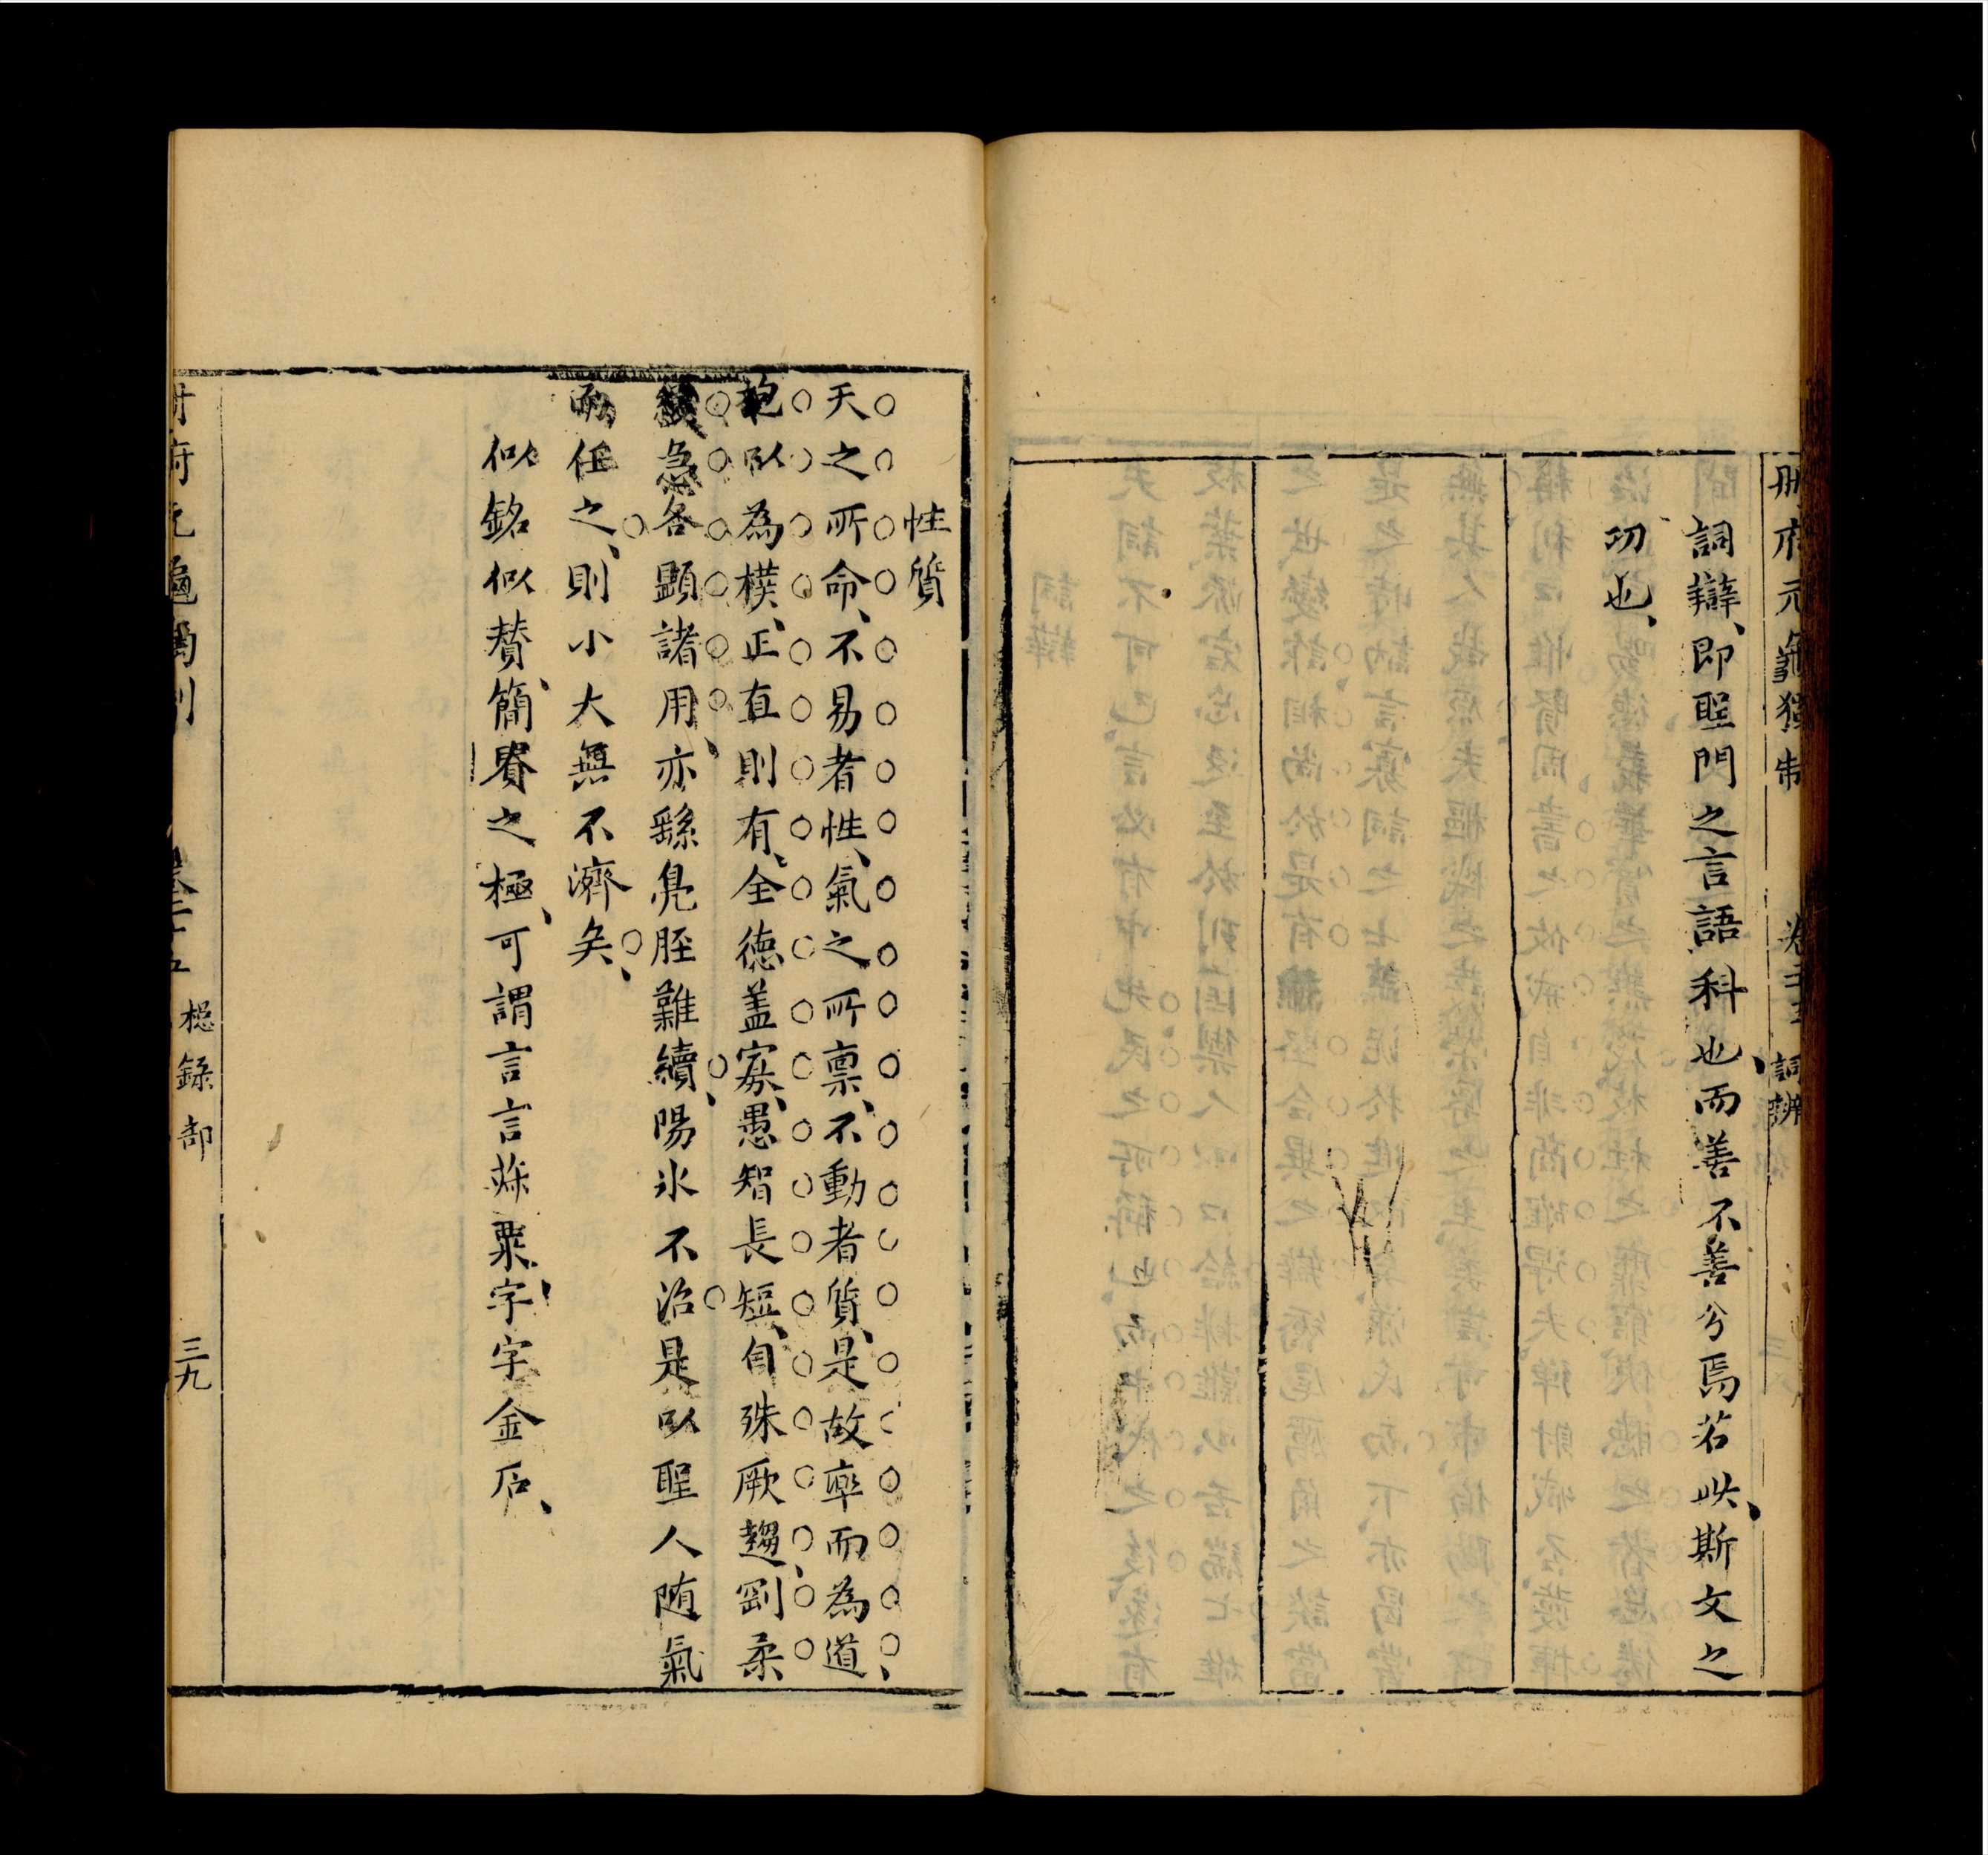 冊府元龜獨制
詞辨
詞辯、即聖門之言語科也、而善不善兮焉若此、斯文之
功也、
性質
天之所命、不易者性、氣之所禀、不動者質、是故率而為道、
抱以為樸、正直則有、全德盖寡、愚智長短、自殊厥趨、剛柔
緩急各顯諸用、亦繇鳬脛難續、陽氷不治是以聖人随氣
而任之、則小大無不濟矣、
似銘似賛、簡貴之極、可謂言言菽粟、字字金石、
總錄部
三九